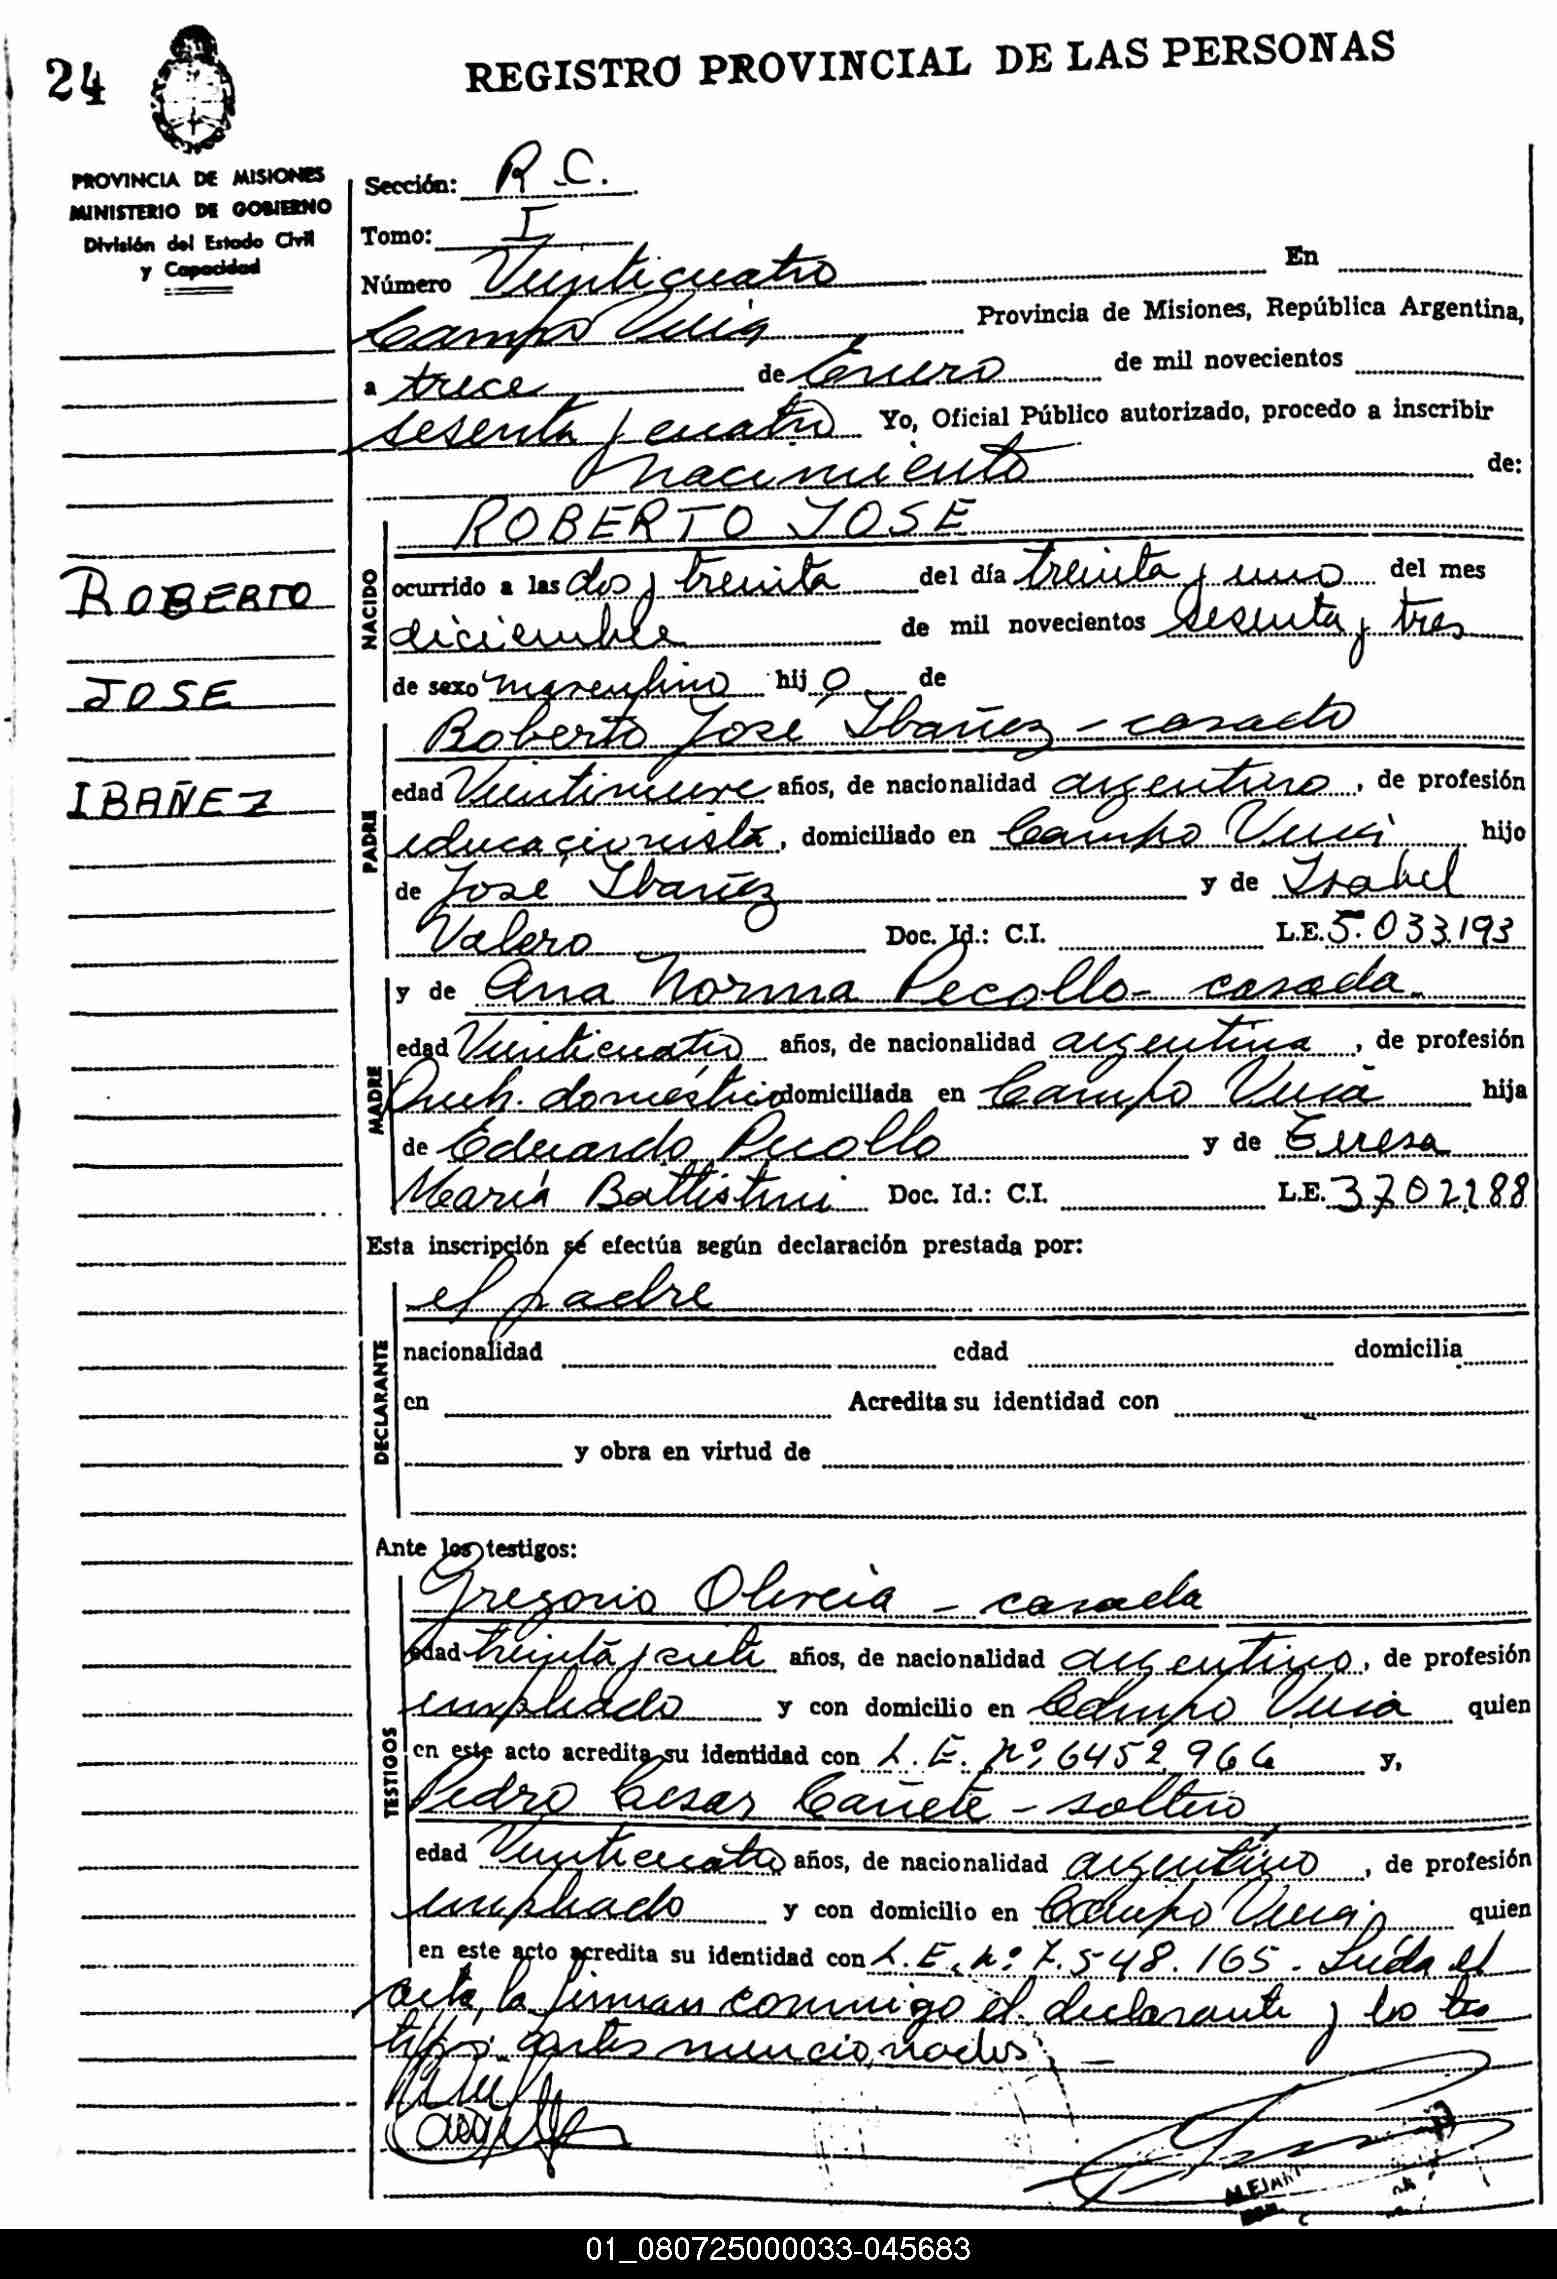 24
REGISTRO PROVINCIAL DE LAS PERSONAS
PROVINCIA DE MISIONES
MINISTERIO DE GOBIERNO
División del Estado Civil
y Capacidad
Sección: R.C.
Tomo: I
Número Veinticuatro En
Campo Viera Provincia de Misiones, República Argentina,
a trece de Enero de mil novecientos
sesenta y cuatro Yo, Oficial Público autorizado, procedo a inscribir
nacimiento de:
ROBERTO JOSE
NACIDO
ocurrido a las dos y treinta del día treinta y uno del mes
diciembre de mil novecientos sesenta y tres
de sexo masculino hijo de
ROBERTO
JOSE
IBAÑEZ
Roberto José Ibañez - casado
PADRE
edad Veintinueve años, de nacionalidad argentino, de profesión
educacionista, domiciliado en Campo Viera hijo
de José Ibañez y de Isabel
Valero Doc. Id.: C.I. L.E. 5.033.193
MADRE
y de Ana Norma Pecollo - casada
edad Veinticuatro años, de nacionalidad argentina, de profesión
Queh. doméstico domiciliada en Campo Viera hija
de Eduardo Pecollo y de Teresa
María Battistini Doc. Id.: C.I. L.E. 3702288
Esta inscripción se efectúa según declaración prestada por:
DECLARANTE
el padre
nacionalidad edad domicilia
en Acredita su identidad con
y obra en virtud de
Ante los testigos:
TESTIGOS
Gregorio Olivera - casada
edad treinta y siete años, de nacionalidad argentino, de profesión
empleado y con domicilio en Campo Viera quien
en este acto acredita su identidad con L.E. nº 6452966 y,
Pedro Cesar Cañete - soltero
edad Veinticuatro años, de nacionalidad argentino, de profesión
empleado y con domicilio en Campo Viera quien
en este acto acredita su identidad con L.E. nº 7.548.165. Leída el
acta, la firman conmigo el declarante y los tes
tigos antes mencionados. -
01_080725000033-045683